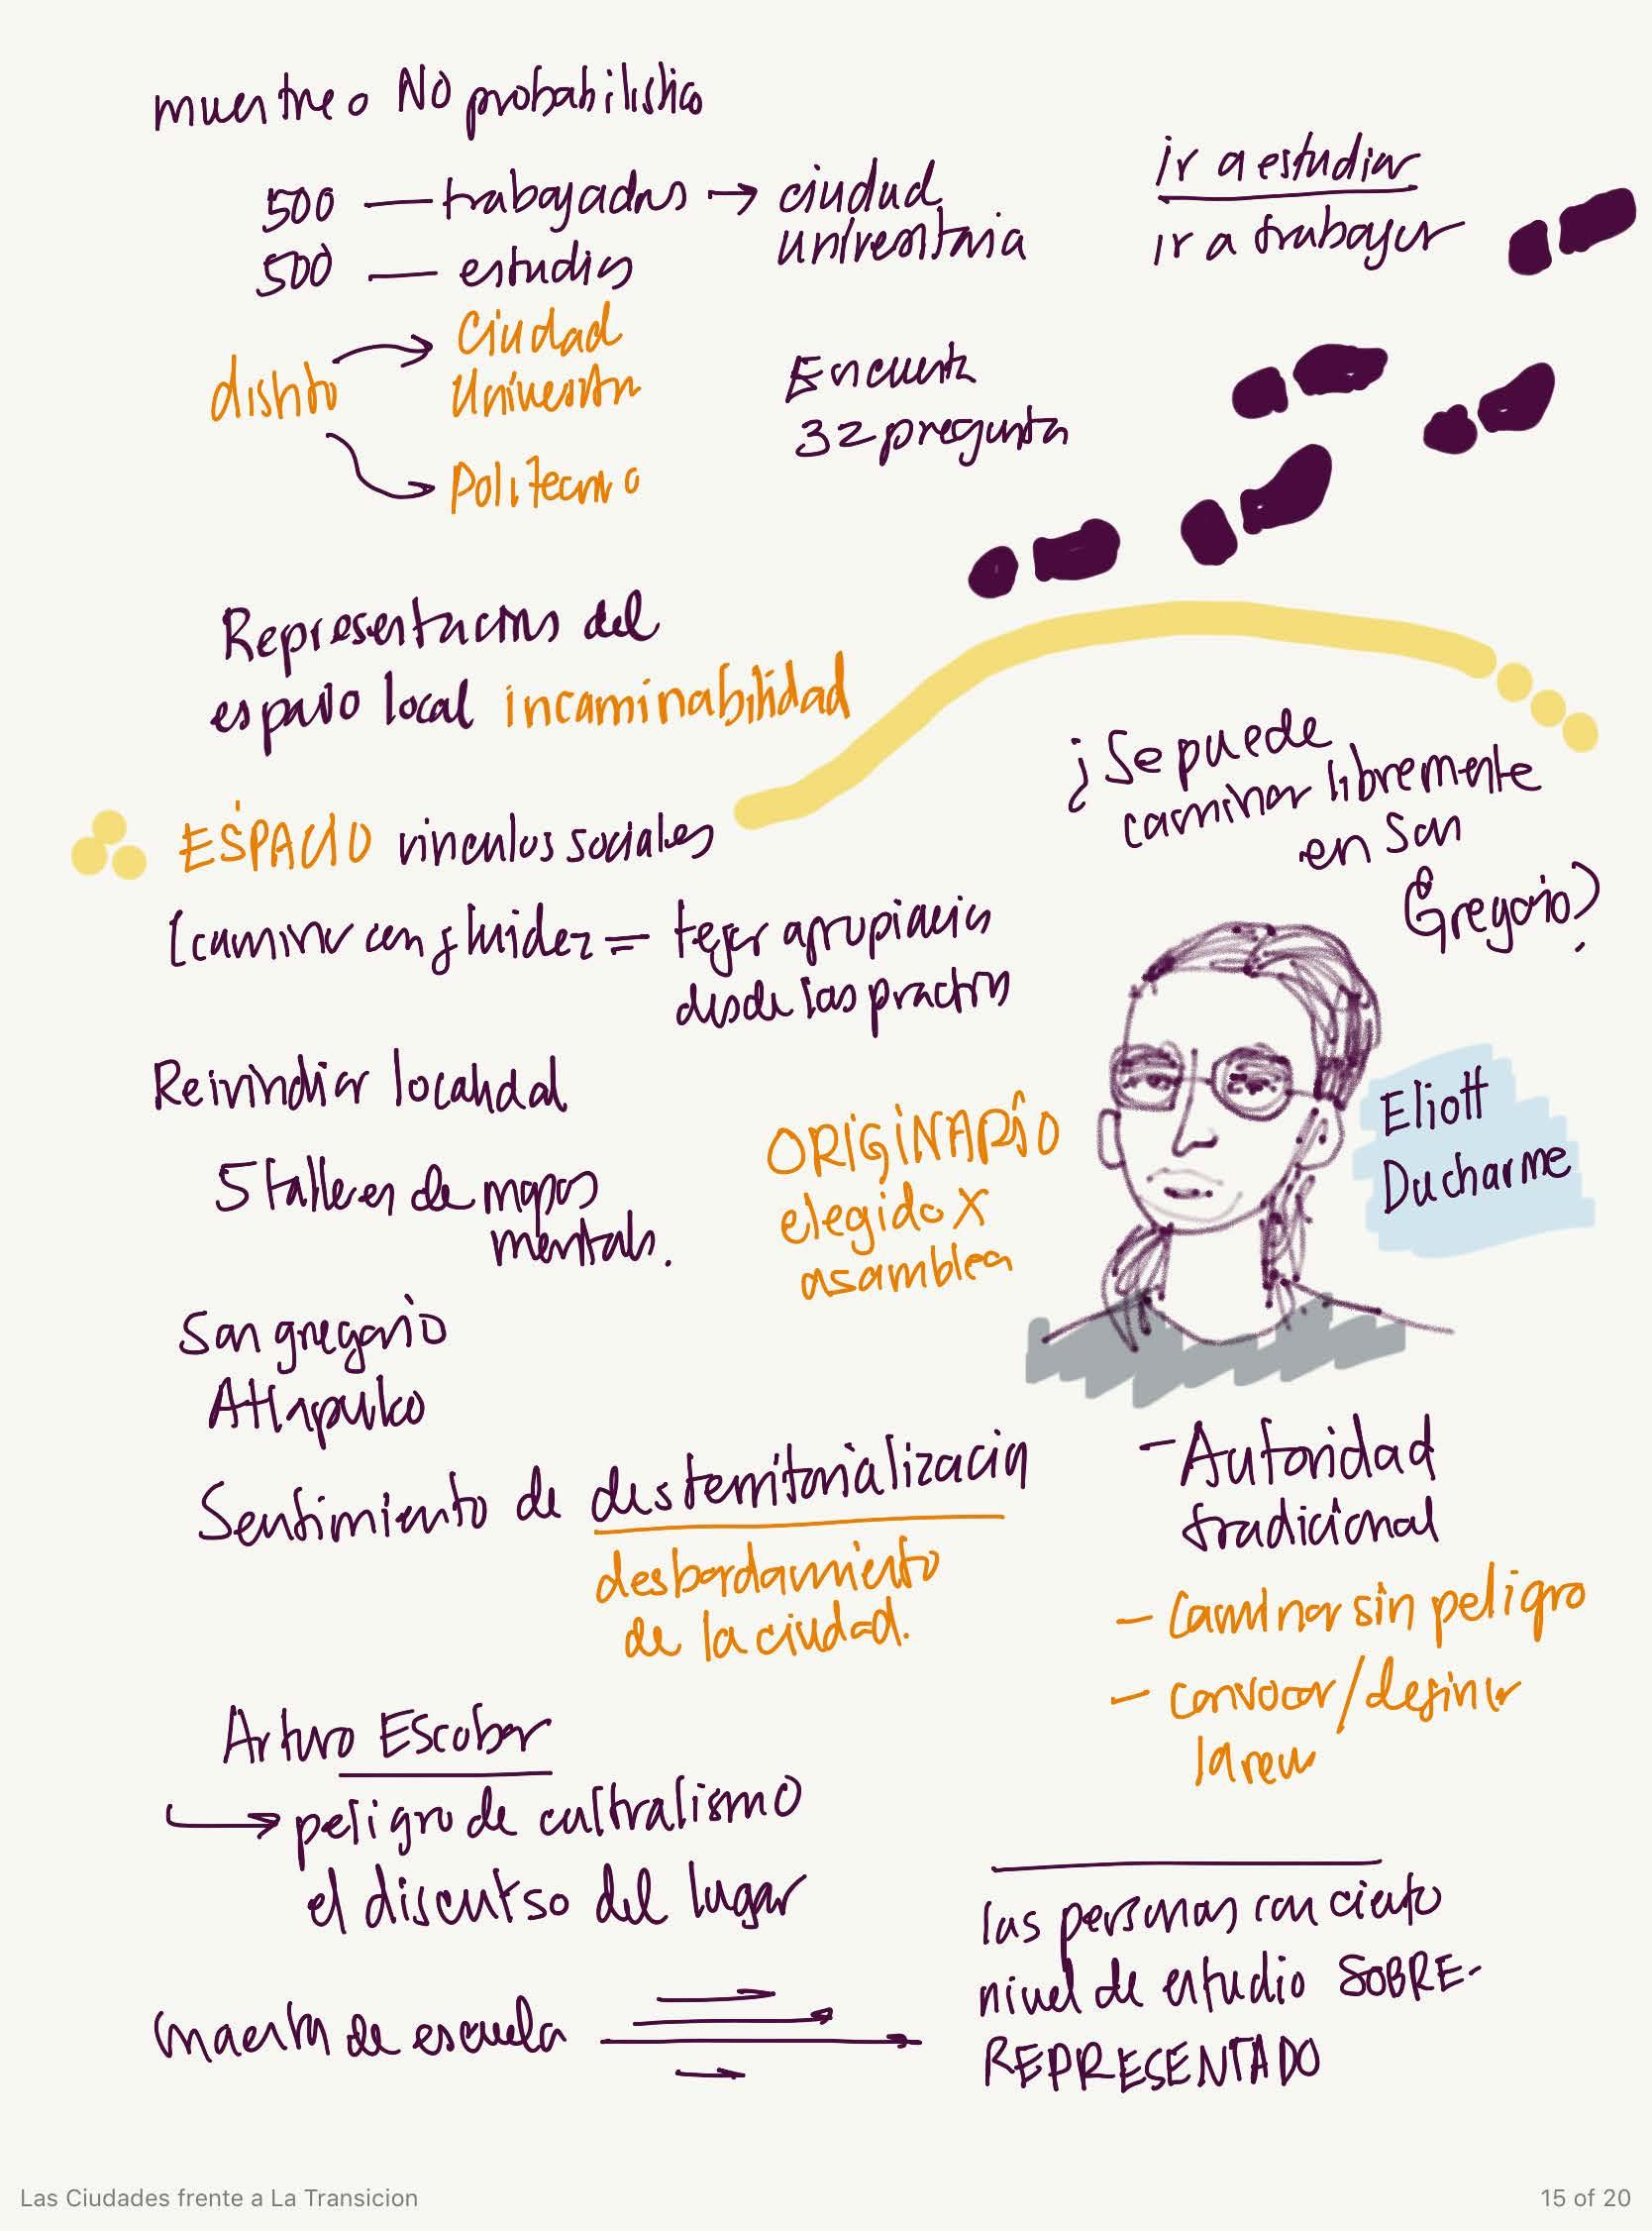 muestreo NO probabilistico
500 — trabajadores → ciudad
universitaria
500 — estudios
ir a estudiar
ir a trabajar
distrito
Ciudad
Politecnico
Encuesta
32 pregunta
Representacions del
espacio local incaminabilidad
¿Se puede
caminar libremente
en San
Gregorio?
ESPACIO vinculos sociales
caminar con fluidez = tejer apropiación
desde las practicas
Reivindicar localidad
5 talleres de mapas
mentals.
ORIGINARIO
elegido X
asamblea
Eliott
Ducharme
San gregorio
Atlapulco
Sentimiento de desterritorialización
desbordamiento
de la ciudad.
- Autoridad
tradicional
- Caminar sin peligro
- convocar/definir
Arturo Escobar
peligro de cultralismo
el discurso del lugar
maestra de escuela
las personas con cierto
nivel de estudio SOBRE-
REPRESENTADO
Las Ciudades frente a La Transicion
15 of 20